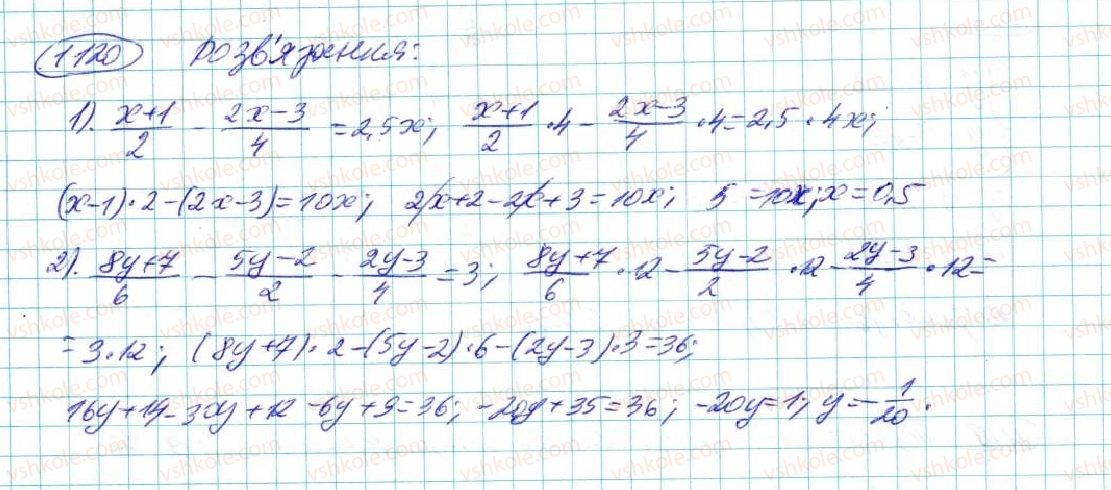 1120 Розв'язання:
1). (x+1)/2 - (2x-3)/4 = 2,5x; (x+1)/2 · 4 - (2x-3)/4 · 4 = 2,5 · 4x;
(x-1) · 2 - (2x-3) = 10x; 2x+2-2x+3 = 10x; 5 = 10x; x = 0,5
2). (8y+7)/6 - (5y-2)/2 - (2y-3)/4 = 3; (8y+7)/6 · 12 - (5y-2)/2 · 12 - (2y-3)/4 · 12 =
= 3 · 12; (8y+7) · 2 - (5y-2) · 6 - (2y-3) · 3 = 36;
16y+14-30y+12-6y+9 = 36; -20y+35 = 36; -20y = 1; y = -1/20.